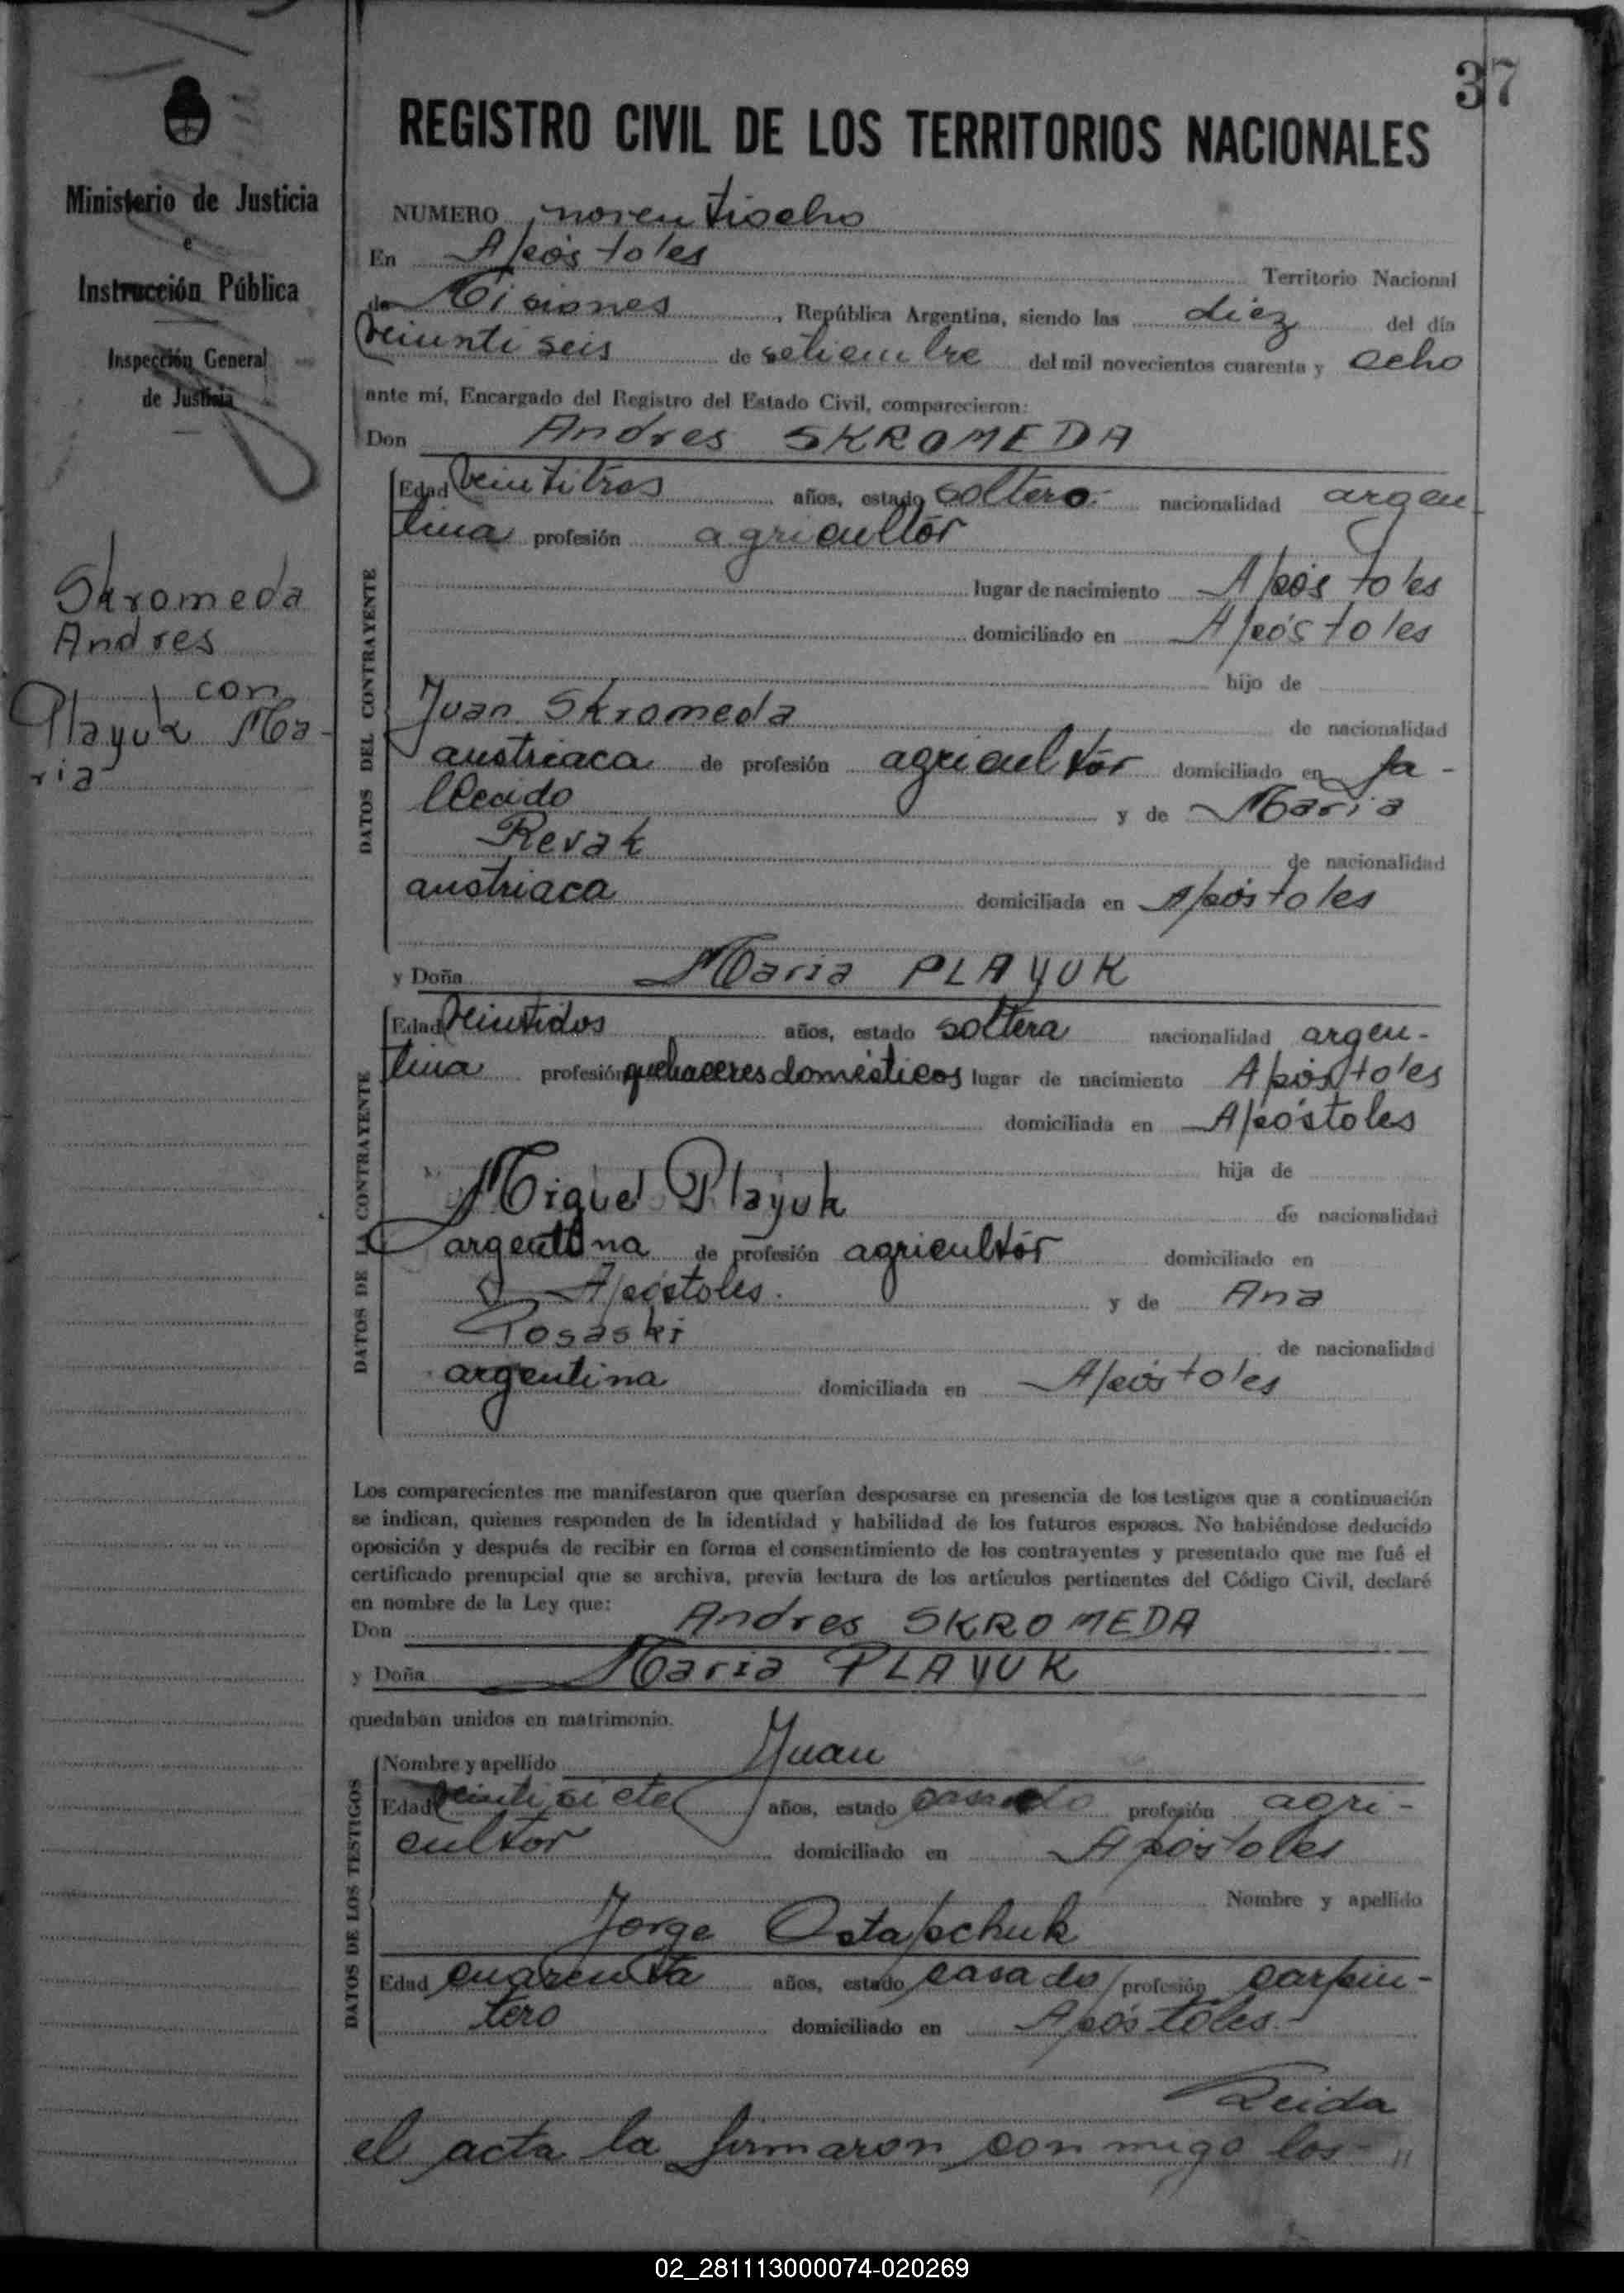 37
REGISTRO CIVIL DE LOS TERRITORIOS NACIONALES
Ministerio de Justicia
e
Instrucción Pública
Inspección General
de Justicia
Skromeda
Andres
con
Playuk Ma-
ria
NUMERO noventiocho
En Apóstoles Territorio Nacional
de Misiones, República Argentina, siendo las diez del día
veiunti seis de setiembre del mil novecientos cuarenta y ocho
ante mí, Encargado del Registro del Estado Civil, comparecieron:
Don Andres SKROMEDA
DATOS DEL CONTRAYENTE
Edad veintitres años, estado soltero nacionalidad argen
tina profesión agricultor
lugar de nacimiento Apóstoles
domiciliado en Apóstoles
hijo de
Juan Skromeda de nacionalidad
austriaca de profesión agricultor domiciliado en fa-
llecido y de Maria
Revak de nacionalidad
austriaca domiciliada en Apóstoles
y Doña Maria PLAYUK
DATOS DE LA CONTRAYENTE
Edad veintidos años, estado soltera nacionalidad argen-
tina profesión quehaceres domésticos lugar de nacimiento Apóstoles
domiciliada en Apóstoles
hija de
Miguel Playuk de nacionalidad
argentina de profesión agricultor domiciliado en
Apóstoles. y de Ana
Posaski de nacionalidad
argentina domiciliada en Apóstoles
Los comparecientes me manifestaron que querían desposarse en presencia de los testigos que a continuación
se indican, quienes responden de la identidad y habilidad de los futuros esposos. No habiéndose deducido
oposición y después de recibir en forma el consentimiento de los contrayentes y presentado que me fué el
certificado prenupcial que se archiva, previa lectura de los artículos pertinentes del Código Civil, declaré
en nombre de la Ley que:
Don Andres SKROMEDA
y Doña Maria PLAYUK
quedaban unidos en matrimonio.
DATOS DE LOS TESTIGOS
Nombre y apellido Juan
Edad veintisiete años, estado casado profesión agri-
cultor domiciliado en Apóstoles
Nombre y apellido
Jorge Ostapchuk
Edad cuarenta años, estado casado profesión carpin-
tero domiciliado en Apóstoles.
Leida
el acta la firmaron conmigo los
02_281113000074-020269